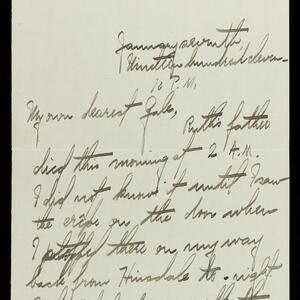 January seventh,
Nineteen hundred eleven—
10 P.M.
My own dearest Gale,
Ruth's father
died this morning at 2 A.M.
I did not know it until I saw
the crêpe on the door when
I stopped there on my way
back from Hinsdale to-night